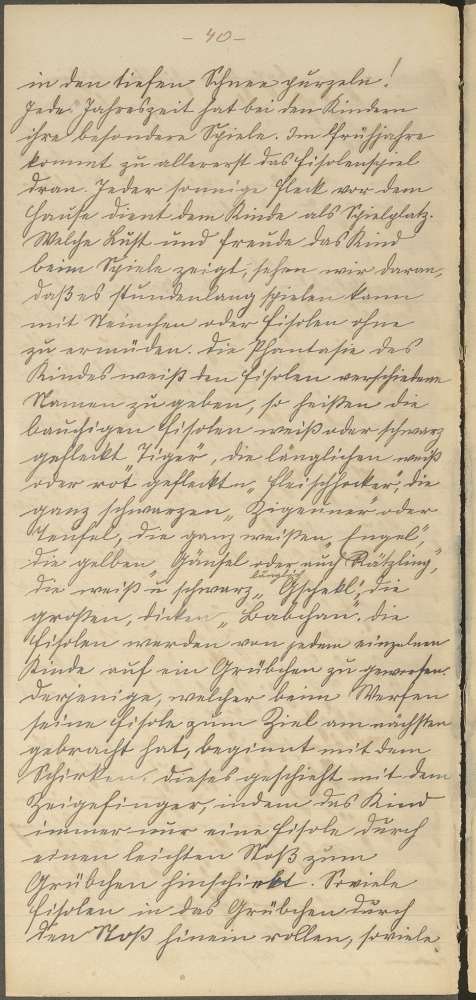 - 40 -
in den tiefen Schnee purzeln!
Jede Jahreszeit hat bei den Kindern
ihre besondere Spiele. Im Frühjahre
kommt zu allererst das Fisolenspiel
dran. Jeder sonnige Fleck vor dem
Hause dient dem Kinde als Spielplatz.
Welche Lust und Freude das Kind
beim Spiele zeigt, sehen wir daran,
daß es stundenlang spielen kann
mit Steinchen oder Fisolen ohne
zu ermüden. Die Phantasie des
Kindes weiß den Fisolen verschiedene
Namen zu geben, so heißen die
bauchigen Fisolen weiß oder schwarz
gefleckt "Tiger", die länglichen weiß
oder rot gefleckt "Fleischhocker", die
ganz schwarzen "Zigeuner" oder
Teufel, die ganz weißen "Engel",
die gelben "Gänsel oder auch Rätzling",
länglich
die weiß u schwarz "Gschekl", die
großen, dicken "Babschan". Die
Fisolen werden von jedem einzelnen
Kinde auf ein Grübchen zu geworfen.
Derjenige, welcher beim Werfen
seine Fisole zum Ziel am nächsten
gebracht hat, beginnt mit dem
Schirken, dieses geschieht mit dem
Zeigefinger, indem das Kind
immer nur eine Fisole durch
einen leichten Stoß zum
Grübchen hinschiebt. Soviele
Fisolen in das Grübchen durch
den Stoß hinein rollen, soviele